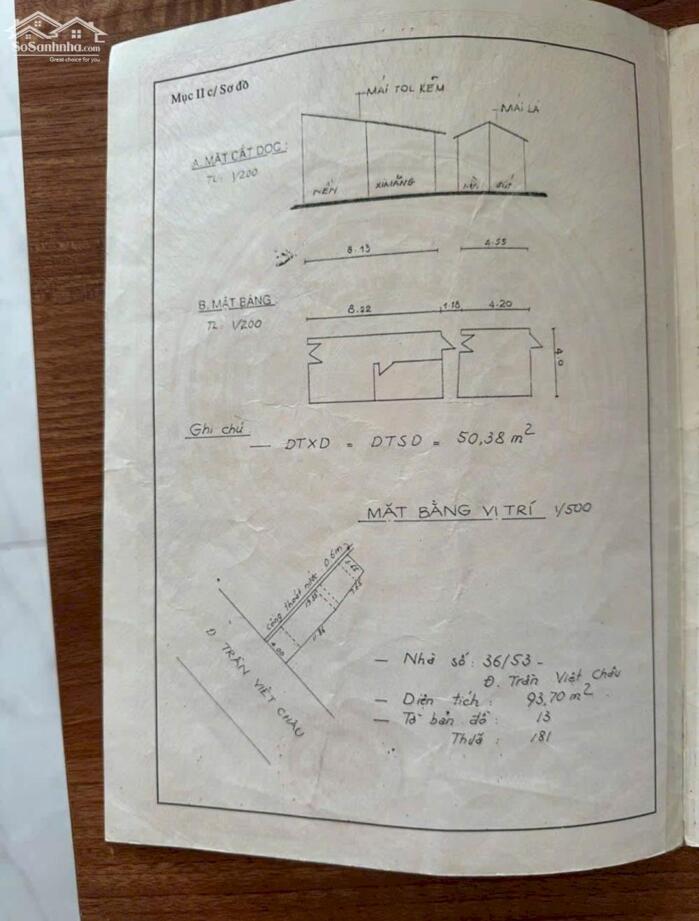 SoSanhnha.com
Great choice for you
Mục II c/ Sơ đồ
MÁI TOL KẼM
MÁI LÁ
A. MẶT CẮT DỌC :
TL: 1/200
NỀN XIMĂNG NỀN ĐẤT
8.13 4.55
B. MẶT BẰNG
TL: 1/200
8.22 1.18 4.20
4.0
Ghi chú
— DTXD = DTSD = 50,38 m²
MẶT BẰNG VỊ TRÍ 1/500
Cống thoát nước 0.6m
4.00
Đ. TRẦN VIỆT CHÂU
— Nhà số : 36/53 -
Đ. Trần Việt Châu
— Diện tích : 93,70 m²
— Tờ bản đồ : 13
Thửa : 181